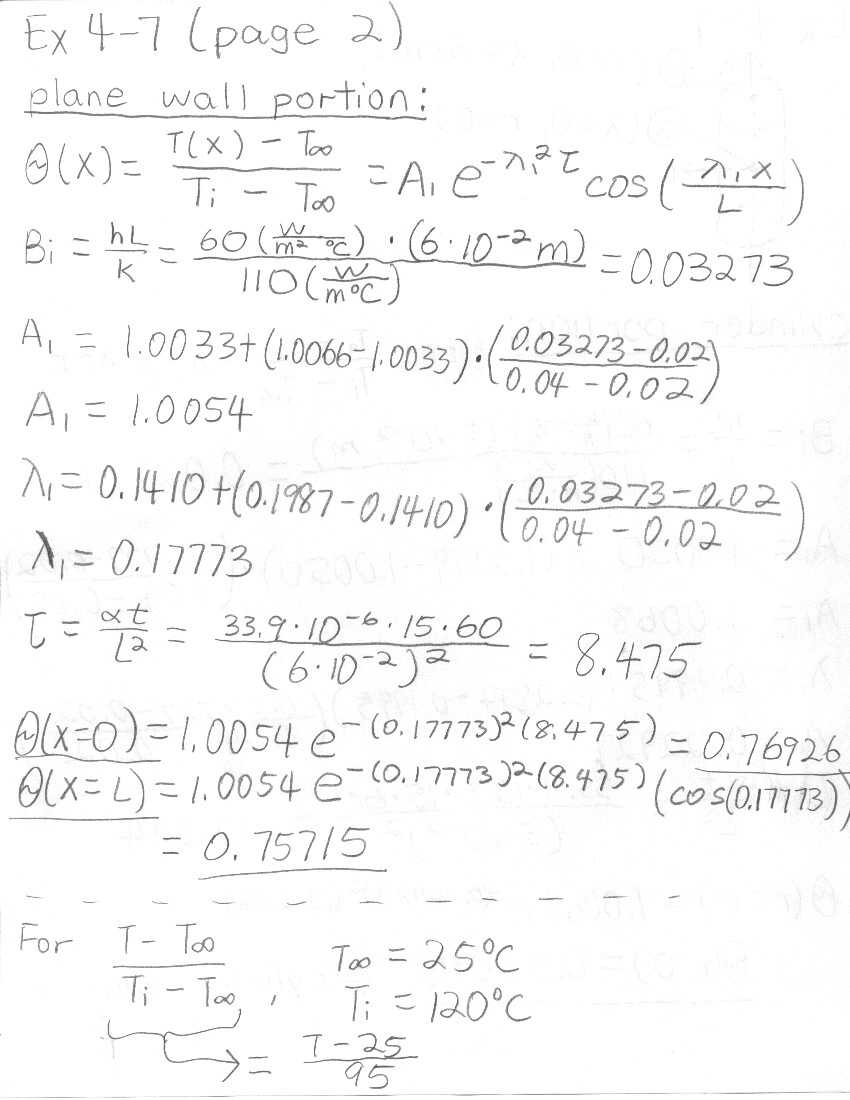 Ex 4-7 (page 2)
plane wall portion:
Θ(x) = (T(x) - T∞)/(Ti - T∞) = A₁ e^(-λ₁²τ) cos(λ₁x/L)
Bi = hL/k = (60 (W/m² °C) · (6·10⁻² m))/(110 (W/m°C)) = 0.03273
A₁ = 1.0033+(1.0066-1.0033)·((0.03273-0.02)/(0.04-0.02))
A₁ = 1.0054
λ₁ = 0.1410+(0.1987-0.1410)·((0.03273-0.02)/(0.04-0.02))
λ₁ = 0.17773
τ = αt/L² = (33.9·10⁻⁶·15·60)/((6·10⁻²)²) = 8.475
Θ(x=0) = 1.0054 e^(-(0.17773)²(8.475)) = 0.76926
Θ(x=L) = 1.0054 e^(-(0.17773)²(8.475)) (cos(0.17773))
= 0.75715
For (T - T∞)/(Ti - T∞), T∞ = 25°C
Ti = 120°C
= (T-25)/95